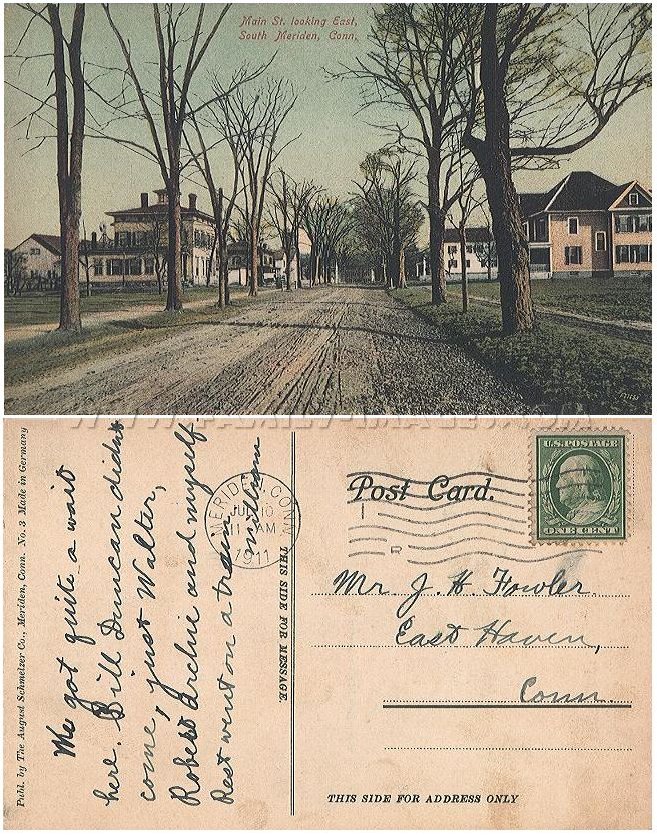 Main St. looking East,
South Meriden, Conn.
Publ. by The August Schmelzer Co., Meriden, Conn. No. 3 Made in Germany
We got quite a wait
here. Bill Duncan didn't
come, just Walter,
Robert Archie and myself.
Rest went on a train
William
MERIDEN CONN.
JUL 10
11 AM
1911
THIS SIDE FOR MESSAGE.
Post Card.
U.S. POSTAGE
ONE CENT
Mr J. H. Fowler.
East Haven,
Conn.
THIS SIDE FOR ADDRESS ONLY